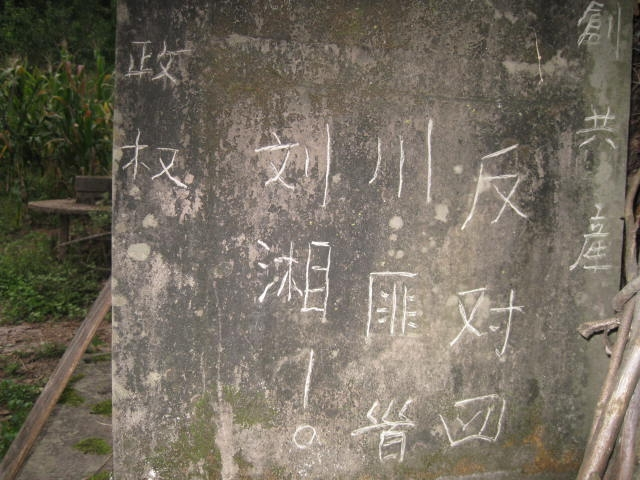 創共産
反对四
川匪首
刘湘！
政权